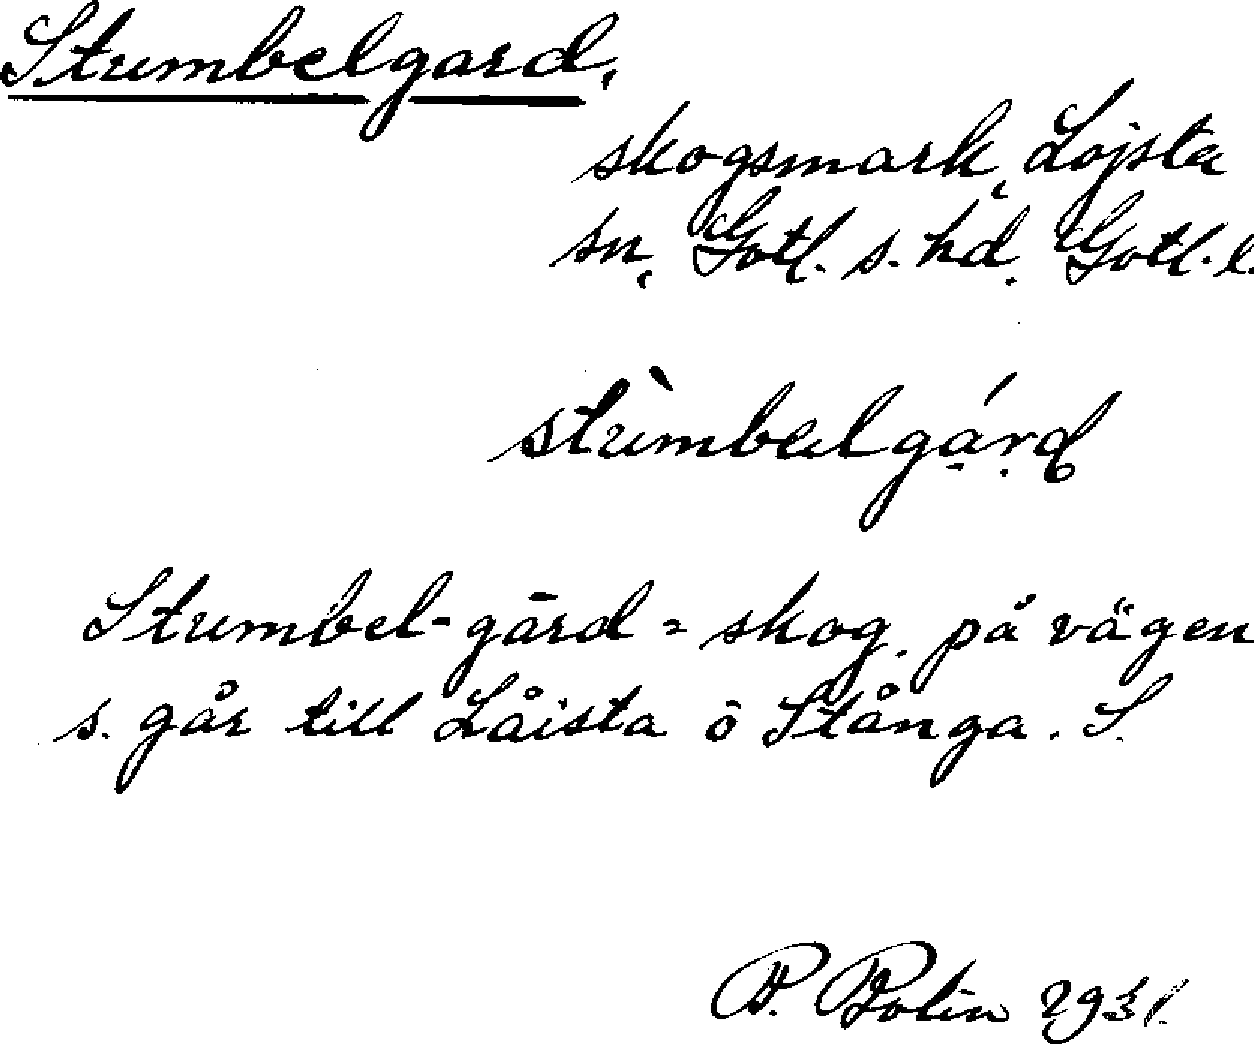 Stumbelgard,
skogsmark, Lojsta
sn, Gotl. s. hd. Gotl. l.
stùmbælgá̱rd
Stumbel-gārd = skog. på vägen
s. går till Låista ō Stånga. S.
Bolin